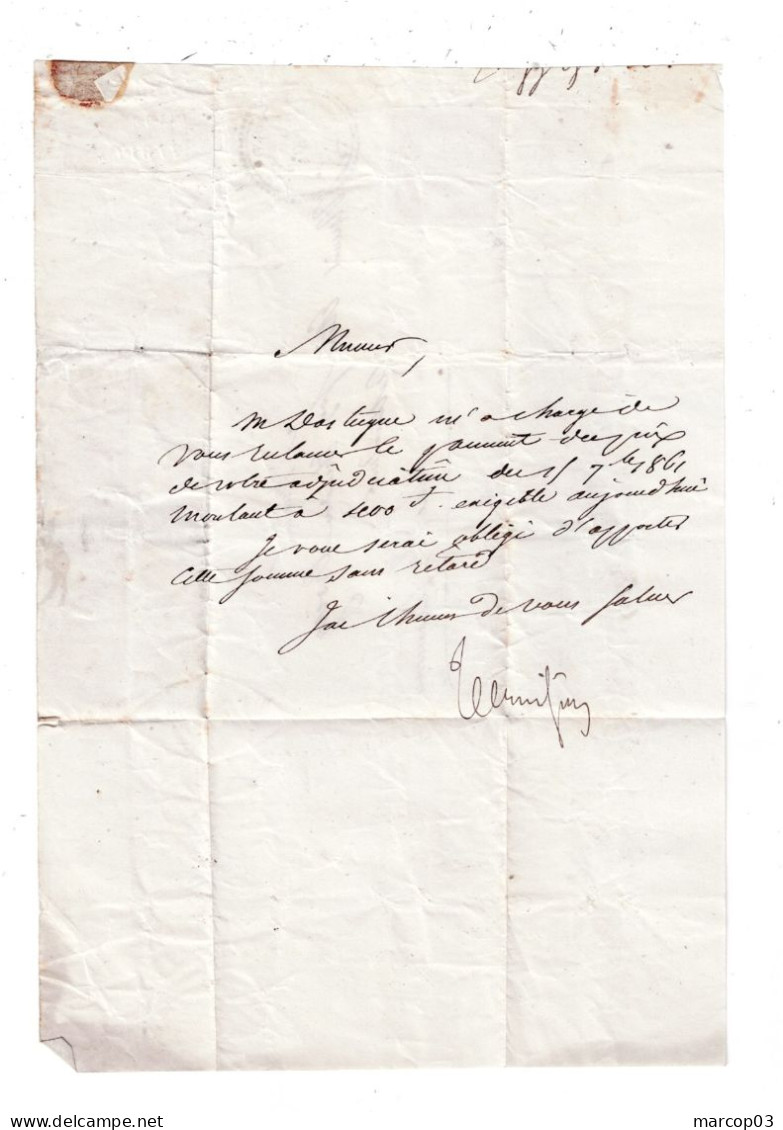 Monsieur,
M Dastugue m'a chargé de
vous réclamer le paiement du prix
de votre adjudication du 15 7bre 1861
montant à 400 f. exigible aujourd'hui
Je vous serai obligé d'apporter
cette somme sans retard
J'ai l'honneur de vous saluer
marcop03